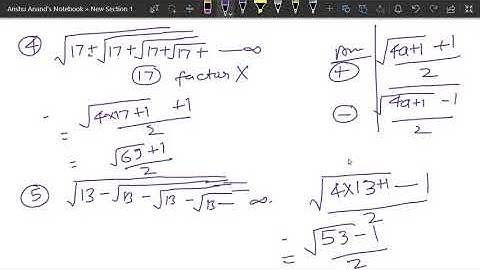 Anshu Anand's Notebook » New Section 1
④ √17+√17+√17+√17+ —∞
(17) factor X
= √4×17+1 +1 / 2
= √69+1 / 2
⑤ √13-√13-√13-√13- ∞
+ √4a+1 +1 / 2
- √4a+1 -1 / 2
√4×13+1 -1 / 2
= √53-1 / 2